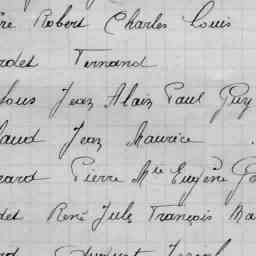 re Robert Charles Louis
rdet Fernand
lous Jean Alain Paul Guy
aud Jean Maurice
eard Pierre Mie Eugène Ga
det René Jules François Ma
rd Auguste Joseph